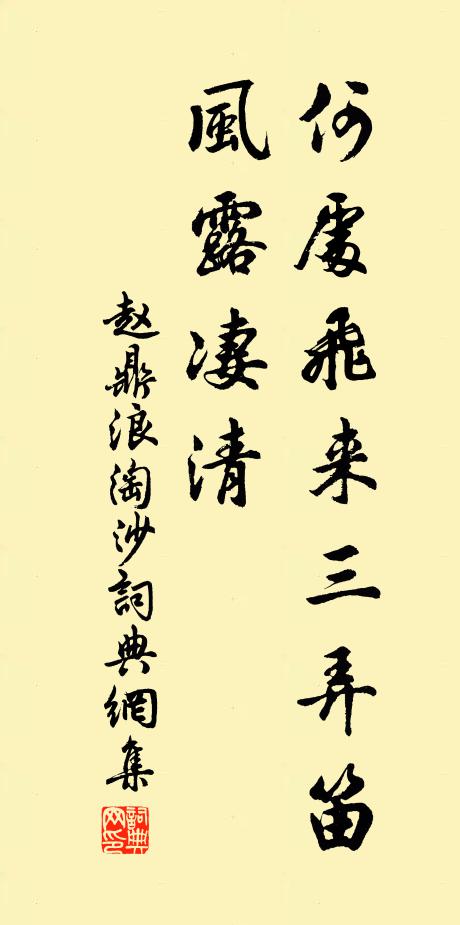 何處飛来三弄笛
風露凄清
赵鼎浪淘沙詞典網集
詞典网印